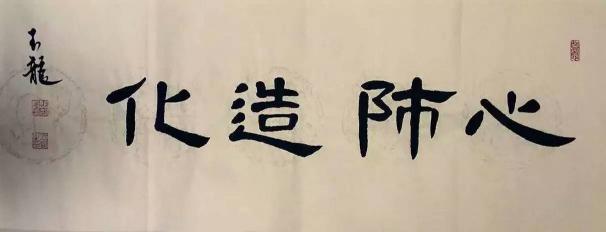 心師造化
玉龍